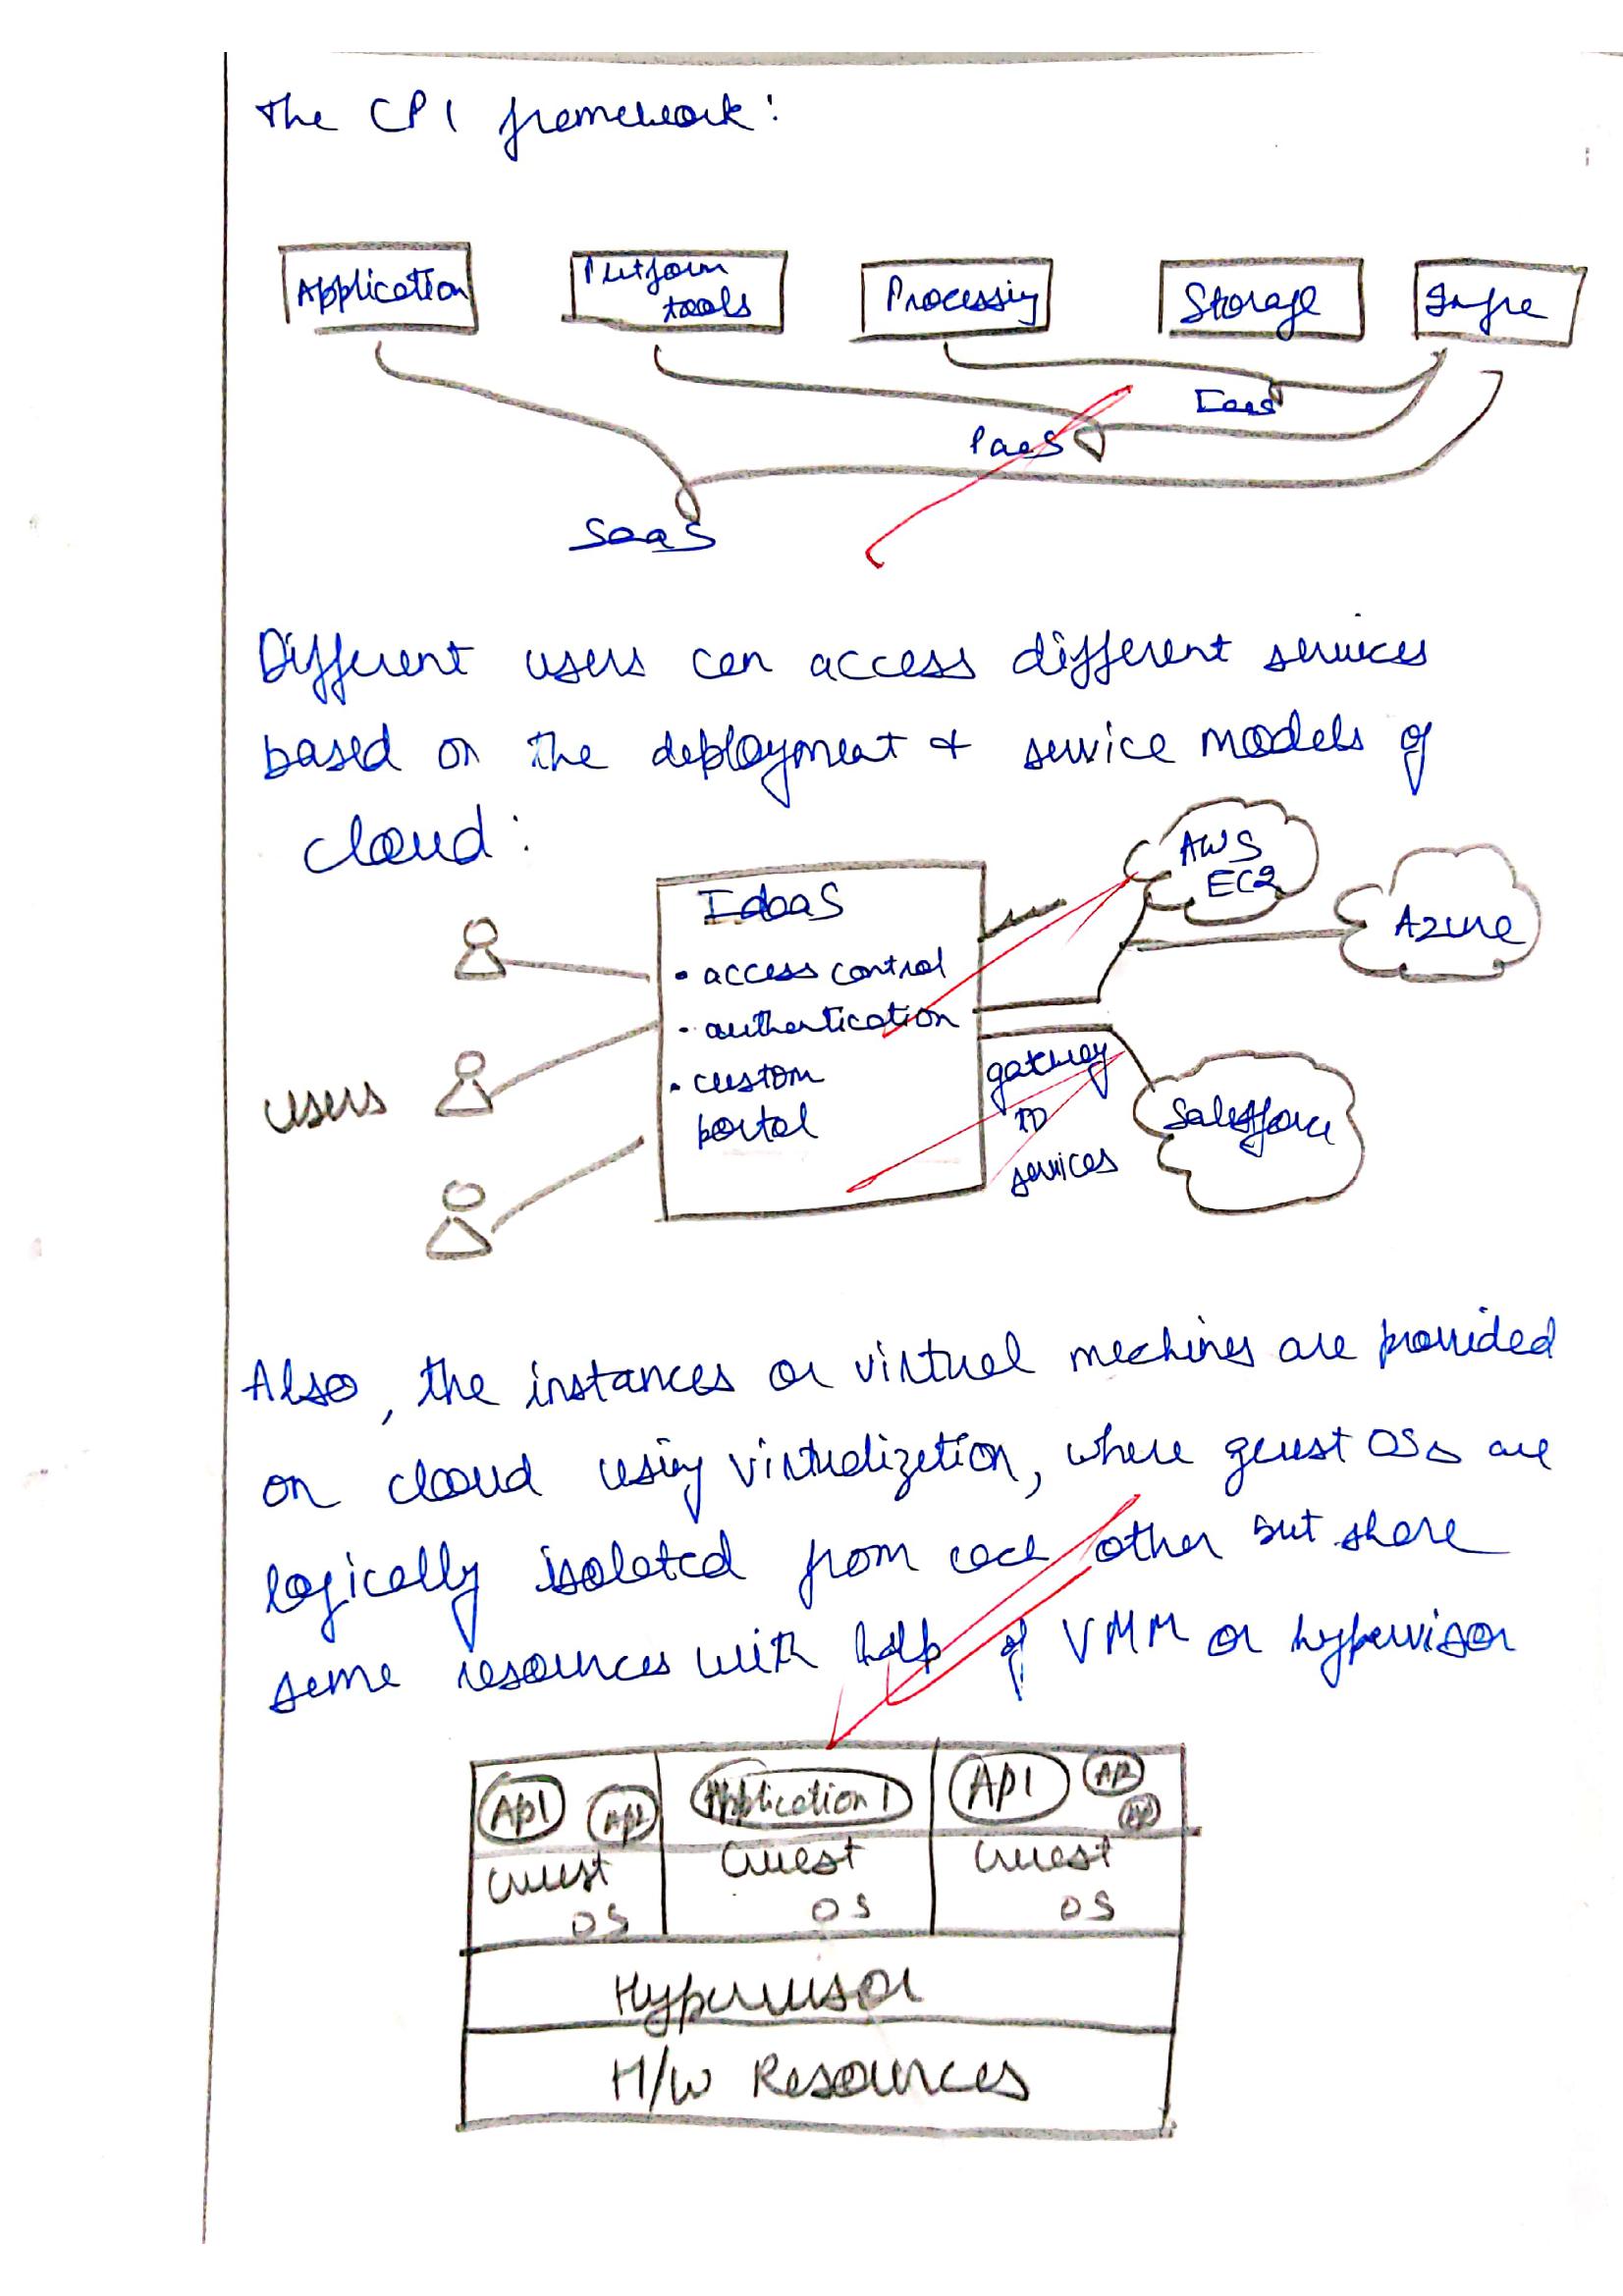 The CPI framework:
Application
Platform
tools
Processing
Storage
Infra
IaaS
PaaS
SaaS
Different users can access different services
based on the deployment & service models of
cloud:
IdaaS
• access control
• authentication
• custom
portal
users
AWS
EC2
Azure
gateway
to
services
Salesforce
Also, the instances or virtual machines are provided
on cloud using virtualization, where guest OSs are
logically isolated from each other but share
same resources with help of VMM or hypervisor
Ap1
Ap2
Application 1
Ap1
Ap2
Guest
OS
Guest
OS
Guest
OS
Hypervisor
H/W Resources